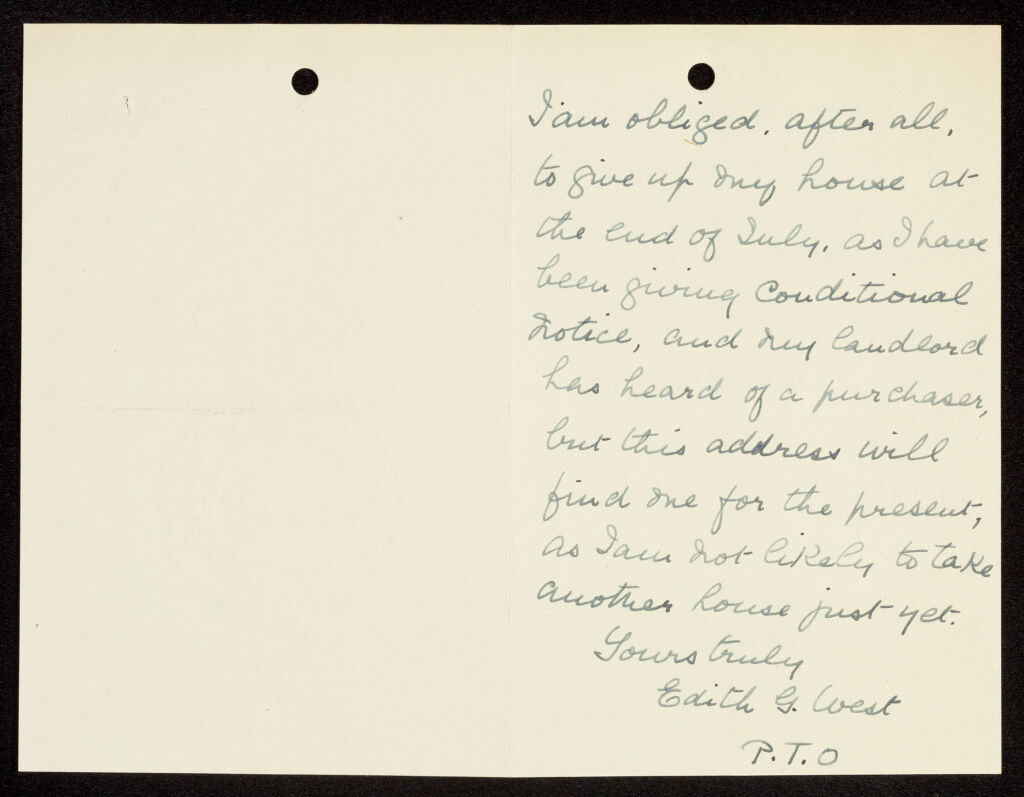 I am obliged, after all,
to give up my house at
the end of July, as I have
been giving conditional
notice, and my landlord
has heard of a purchaser,
but this address will
find me for the present,
as I am not likely to take
another house just yet.
Yours truly
Edith G. West
P.T.O